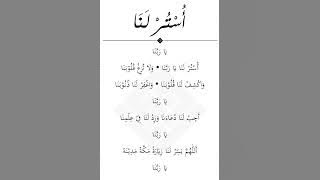 أُسْتُرْ لَنَا
يَا رَبَّنَا
أُسْتُرْ لَنَا يَا رَبَّنَا • وَلَا تُزِغْ قُلُوْبَنَا
وَاكْشِفْ لَنَا قُلُوْبَنَا • وَاغْفِرْ لَنَا ذُنُوْبَنَا
يَا رَبَّنَا
أَجِبْ لَنَا دُعَاءَنَا وَزِدْ لَنَا فِي عِلْمِنَا
يَا رَبَّنَا
اَللّٰهُمَّ يَسِّرْ لَنَا زِيَارَةَ مَكَّةَ مَدِيْنَة
يَا رَبَّنَا